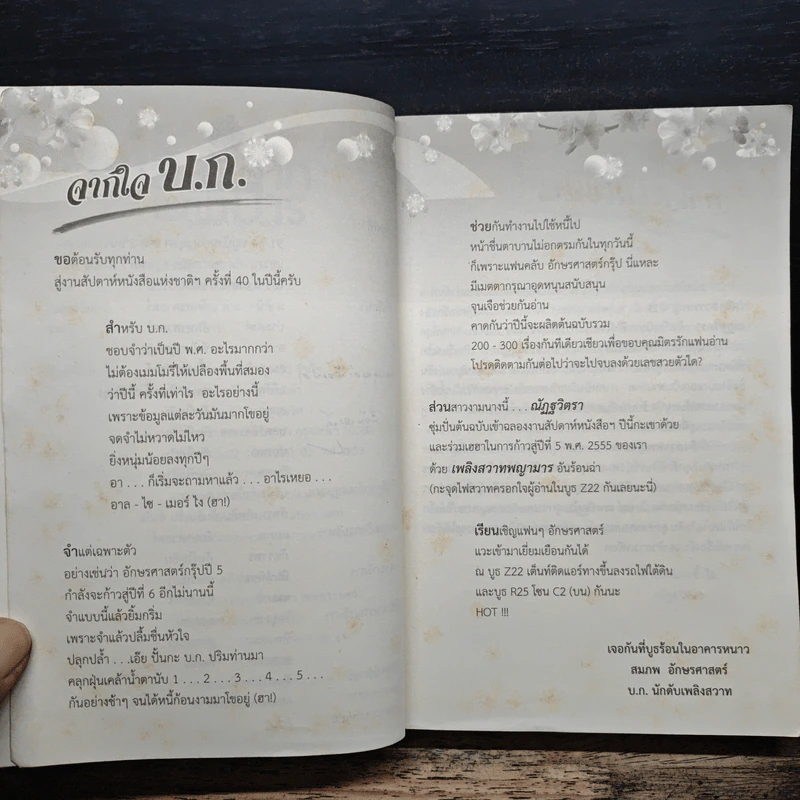 จากใจ บ.ก.
ขอต้อนรับทุกท่าน
สู่งานสัปดาห์หนังสือแห่งชาติฯ ครั้งที่ 40 ในปีนี้ครับ
สำหรับ บ.ก.
ชอบจำว่าเป็นปี พ.ศ. อะไรมากกว่า
ไม่ต้องเมมโมรี่ให้เปลืองพื้นที่สมอง
ว่าปีนี้ ครั้งที่เท่าไร อะไรอย่างนี้
เพราะข้อมูลแต่ละวันมันมากโขอยู่
จดจำไม่หวาดไม่ไหว
ยิ่งหนุ่มน้อยลงทุกปีๆ
อา . . . ก็เริ่มจะถามหาแล้ว . . . อาไรเหยอ . . .
อาล - ไซ - เมอร์ ไง (ฮา!)
จำแต่เฉพาะตัว
อย่างเช่นว่า อักษรศาสตร์กรุ๊ปปี 5
กำลังจะก้าวสู่ปีที่ 6 อีกไม่นานนี้
จำแบบนี้แล้วยิ้มกริ่ม
เพราะจำแล้วปลื้มชื่นหัวใจ
ปลุกปล้ำ . . .เอ๊ย ปั้นกะ บ.ก. ปริมท่านมา
คลุกฝุ่นเคล้าน้ำตานับ 1 . . . 2 . . . 3 . . . 4 . . . 5 . . .
กันอย่างช้าๆ จนได้หนี้ก้อนงามมาโขอยู่ (ฮา!)
ช่วยกันทำงานไปใช้หนี้ไป
หน้าชื่นตาบานไม่อกตรมกันในทุกวันนี้
ก็เพราะแฟนคลับ อักษรศาสตร์กรุ๊ป นี่แหละ
มีเมตตากรุณาอุดหนุนสนับสนุน
จุนเจือช่วยกันอ่าน
คาดกันว่าปีนี้จะผลิตต้นฉบับรวม
200 - 300 เรื่องกันทีเดียวเชียวเพื่อขอบคุณมิตรรักแฟนอ่าน
โปรดติดตามกันต่อไปว่าจะไปจบลงด้วยเลขสวยตัวใด?
ส่วนสาวงามนางนี้ . . . ณัฏฐวิตรา
ซุ่มปั่นต้นฉบับเข้าฉลองงานสัปดาห์หนังสือฯ ปีนี้กะเขาด้วย
และร่วมเฮฮาในการก้าวสู่ปีที่ 5 พ.ศ. 2555 ของเรา
ด้วย เพลิงสวาทพญามาร อันร้อนฉ่า
(กะจุดไฟสวาทครอกใจผู้อ่านในบูธ Z22 กันเลยนะนี่)
เรียนเชิญแฟนๆ อักษรศาสตร์
แวะเข้ามาเยี่ยมเยือนกันได้
ณ บูธ Z22 เต็นท์ติดแอร์ทางขึ้นลงรถไฟใต้ดิน
และบูธ R25 โซน C2 (บน) กันนะ
HOT !!!
เจอกันที่บูธร้อนในอาคารหนาว
สมภพ อักษรศาสตร์
บ.ก. นักดับเพลิงสวาท